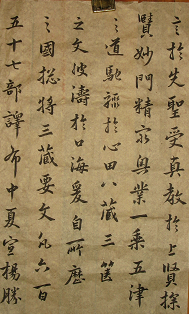 言於先聖受真教於上賢探
賾妙門精窮奧業一乘五律
之道馳驟於心田八藏三篋
之文波濤於口海爰自所歷
之國總將三藏要文凡六百
五十七部譯布中夏宣揚勝